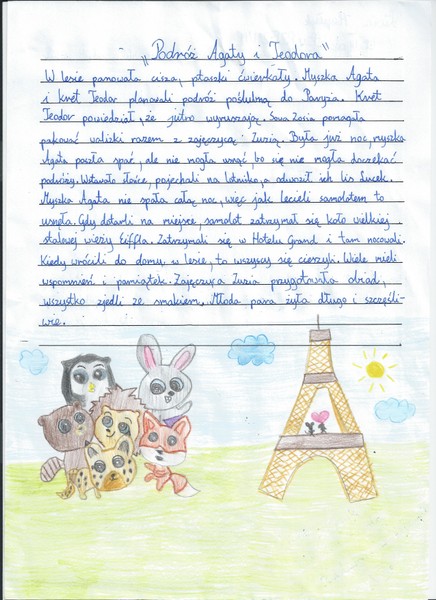 „Podróż Agaty i Teodora"
W lesie panowała cisza, ptaszki ćwierkały. Myszka Agata
i Kret Teodor planowali podróż poślubną do Paryża. Kret
Teodor powiedział, że jutro wyruszają. Sowa Zosia pomagała
pakować walizki razem z zajęczycą Zuzią. Była już noc, myszka
Agata poszła spać, ale nie mogła usnąć, bo się nie mogła doczekać
podróży. Wstawało słońce, pojechali na lotnisko, a odwoził ich lis Lucek.
Myszka Agata nie spała całą noc, więc jak lecieli samolotem to
usnęła. Gdy dotarli na miejsce, samolot zatrzymał się koło wielkiej
stalowej wieży Eiffla. Zatrzymali się w Hotelu Grand i tam nocowali.
Kiedy wrócili do domu, w lesie, to wszyscy się cieszyli. Wiele mieli
wspomnień i pamiątek. Zajęczyca Zuzia przygotowała obiad,
wszystko zjedli ze smakiem. Młoda para żyła długo i szczęśli-
wie.